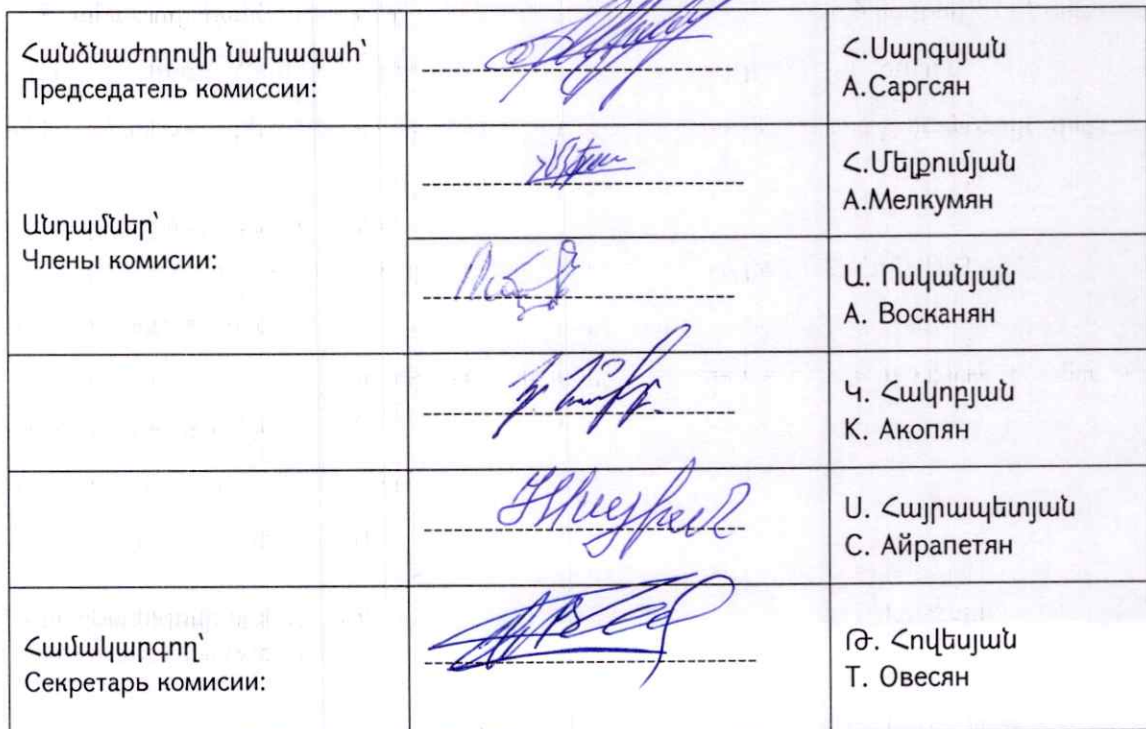 Հանձնաժողովի նախագահ՝
Председатель комиссии:
Հ.Սարգսյան
А.Саргсян
Անդամներ՝
Члены комисии:
Հ.Մելքումյան
А.Мелкумян
Ա. Ոսկանյան
А. Восканян
Կ. Հակոբյան
К. Акопян
Ս. Հայրապետյան
С. Айрапетян
Համակարգող՝
Секретарь комисии:
Թ. Հովեսյան
Т. Овесян